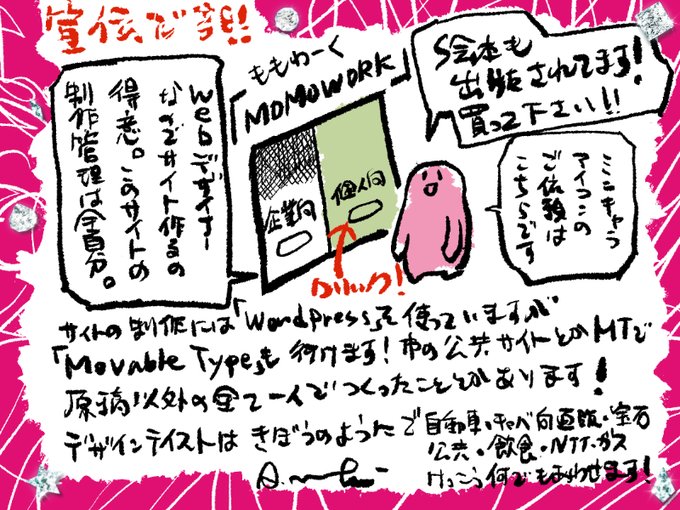 宣伝です!!
Webデザイナー
なのでサイト作るの
得意。このサイトの
制作管理は全自分。
ももわーく
「MOMOWORK」
企業向
個人向
クリック!
絵本も
出版されてます!
買って下さい!!
ミニキャラ
アイコンの
ご依頼は
こちらです
サイトの制作には「Wordpress」を使っていますが
「Movable Type」も行けます!市の公共サイトとかMTで
原稿以外の全て一人でつくったこととかあります!
デザインテイストはきぼうのようたで
自動車・キャバ向通販・宝石
公共・飲食・NTT・ガス
けっこう何でもまかせます!